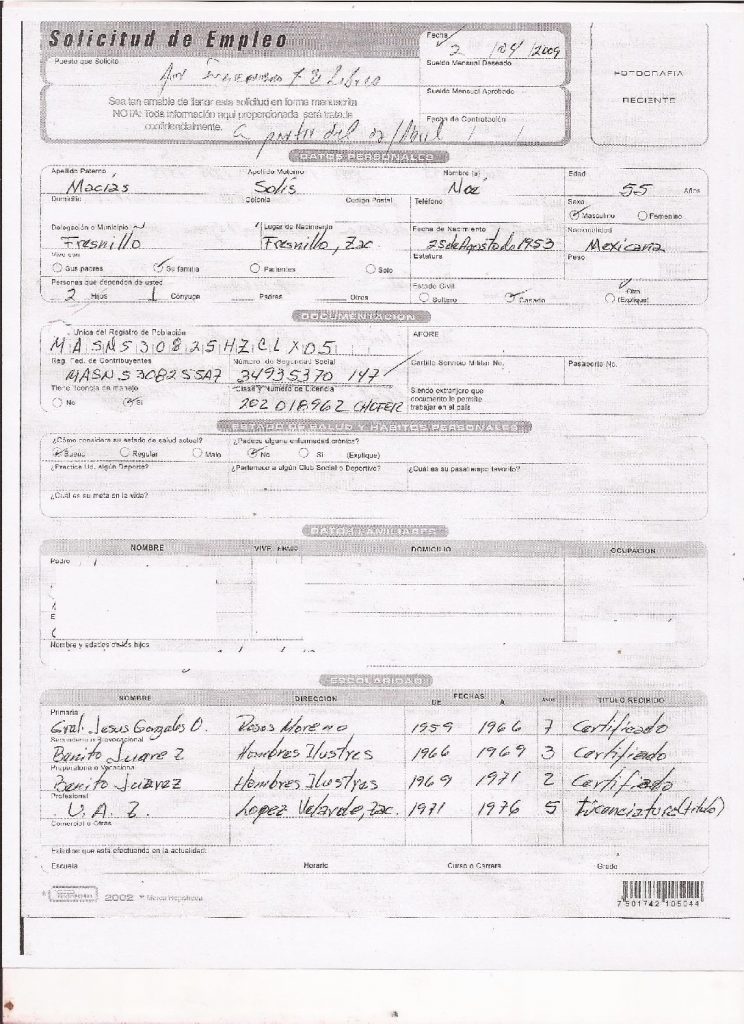 Solicitud de Empleo
Fecha
2 /04 /2009
Puesto que Solicita
Sueldo Mensual Deseado
FOTOGRAFIA
RECIENTE
Sueldo Mensual Aprobado
Sea tan amable de llenar esta solicitud en forma manuscrita
NOTA: Toda información aquí proporcionada será tratada
confidencialmente.
Fecha de Contratación
a partir del 02/Abril / /
DATOS PERSONALES
Apellido Paterno Apellido Materno Nombre (s) Edad
Macías Solís Noé 55 Años
Domicilio Colonia Codigo Postal Teléfono Sexo
Masculino Femenino
Delegación o Municipio Lugar de Nacimiento Fecha de Nacimiento Nacionalidad
Fresnillo Fresnillo, Zac. 25 de Agosto de 1953 Mexicana
Vive con Estatura Peso
Sus padres Su familia Parientes Solo
Personas que dependen de usted Estado Civil
2 Hijos 1 Cónyuge Padres Otros Soltero Casado Otro (Explique)
DOCUMENTACION
Unica del Registro de Población AFORE
MASN530825HZCLX05
Reg. Fed. de Contribuyentes Número de Seguridad Social Cartilla Servicio Militar No. Pasaporte No.
MASN530825SA7 34935370 147
Tiene licencia de manejo Clase y Número de Licencia Siendo extranjero que
documento le permite
trabajar en el país
No Si 202018962 CHOFER
ESTADO DE SALUD Y HABITOS PERSONALES
¿Cómo considera su estado de salud actual? ¿Padece alguna enfermedad crónica?
Bueno Regular Malo No Si (Explique)
¿Practica Ud. algún Deporte? ¿Pertenece a algún Club Social o Deportivo? ¿Cuál es su pasatiempo favorito?
¿Cuál es su meta en la vida?
DATOS FAMILIARES
NOMBRE VIVE DOMICILIO OCUPACION
Padre
Nombre y edades de los hijos
ESCOLARIDAD
NOMBRE DIRECCION FECHAS DE A AÑOS TITULO RECIBIDO
Primaria
Gral. Jesus Gonzales O. Rosas Moreno 1959 1966 7 Certificado
Secundaria o Prevocacional
Benito Juarez Hombres Ilustres 1966 1969 3 Certificado
Preparatoria o Vocacional
Benito Juárez Hombres Ilustres 1969 1971 2 Certificado
Profesional
U. A. Z. Lopez Velarde, Zac. 1971 1976 5 Licenciatura (titulo)
Comercial u Otras
Estudios que está efectuando en la actualidad:
Escuela Horario Curso o Carrera Grado
2002 Marca Registrada
7 501742 105044